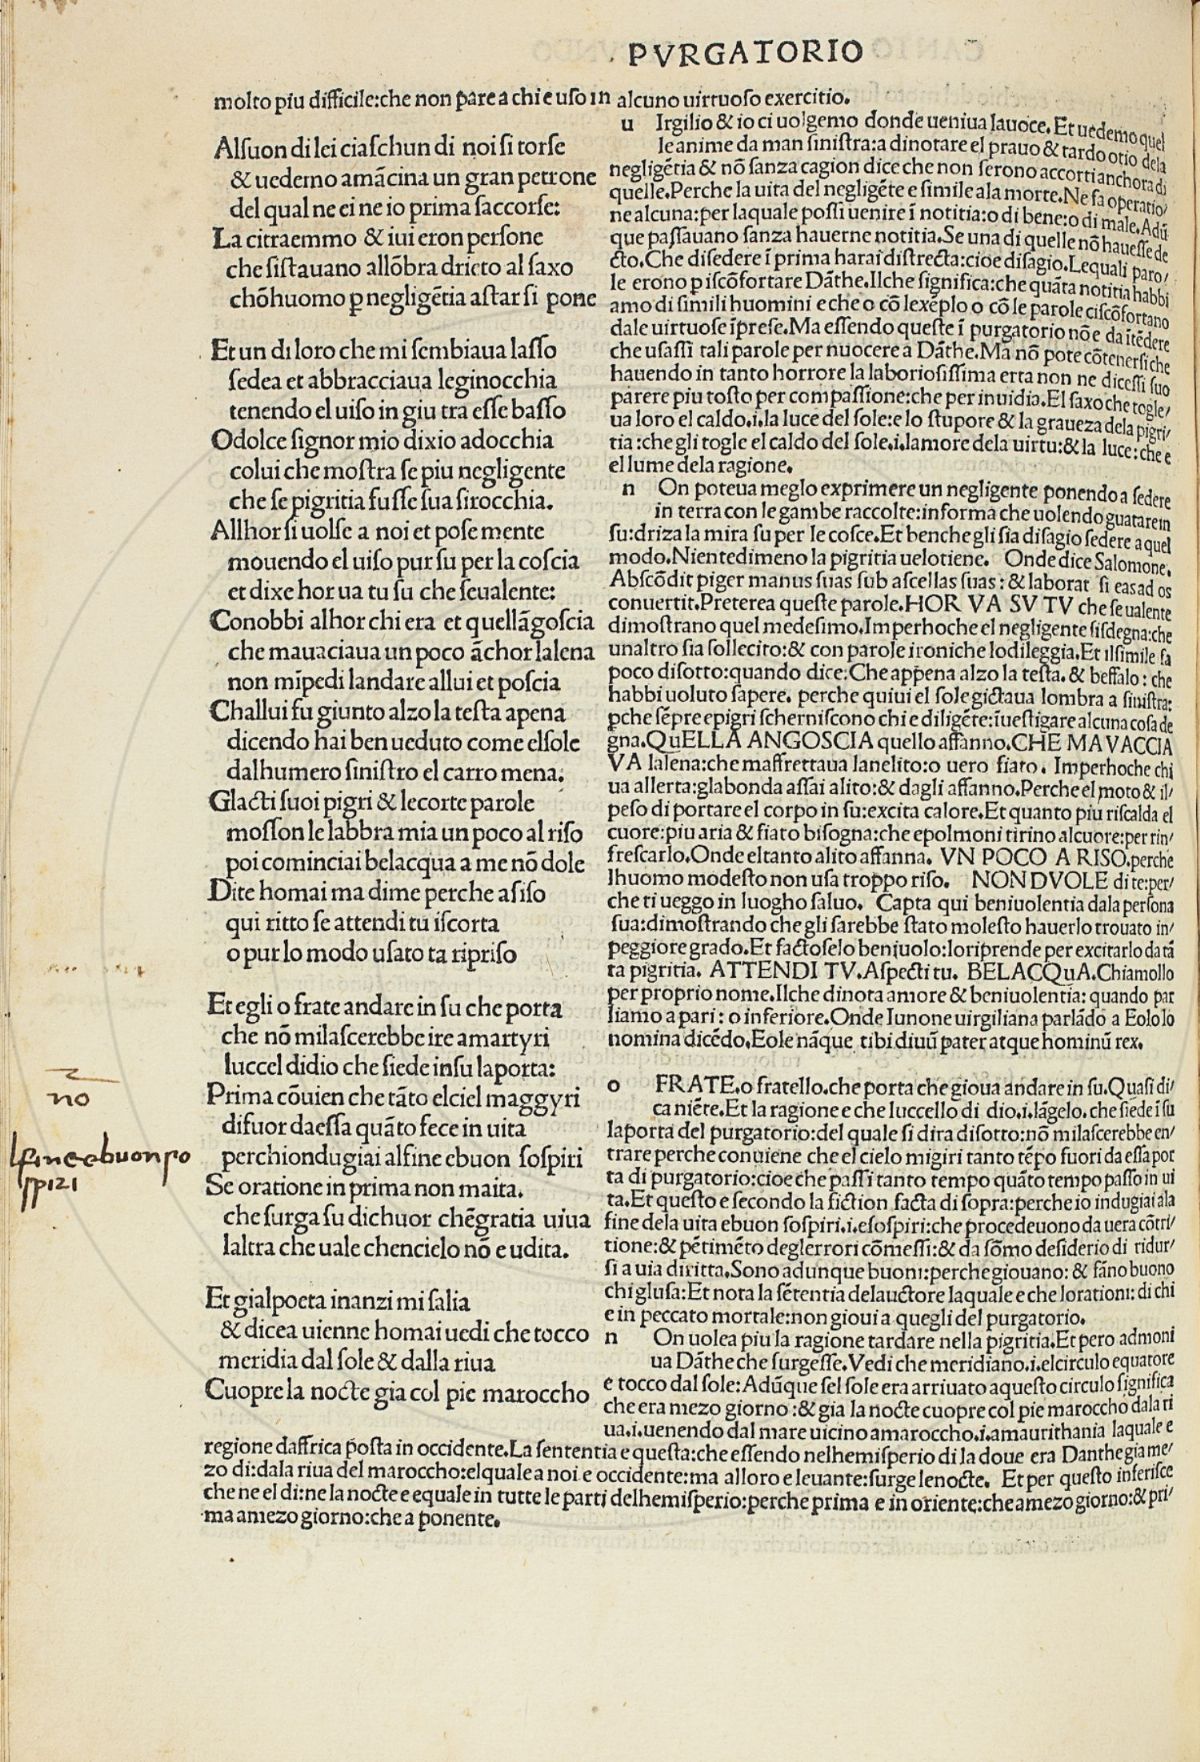 PVRGATORIO
molto piu difficile:che non pare a chi e uso in alcuno uirtuoso exercitio.
Alsuon di lei ciaschun di noi si torse
& uedemo amãcina un gran petrone
del qual ne ei ne io prima saccorse:
La citraemmo & iui eron persone
che sistauano allõbra drieto al saxo
chõhuomo ꝑ negligẽtia astar si pone
Et un di loro che mi sembiaua lasso
sedea et abbracciaua le ginocchia
tenendo el uiso in giu tra esse basso
O dolce signor mio dixio adocchia
colui che mostra se piu negligente
che se pigritia fusse sua sirocchia.
Allhor si uolse a noi et pose mente
mouendo el uiso pur su per la coscia
et dixe hor ua tu su che seualente:
Conobbi alhor chi era et quellãgoscia
che mauaciaua un poco ãchor lalena
non mĩpedi landare allui et poscia
Challui fu giunto alzo la testa apena
dicendo hai ben ueduto come elsole
dalhumero sinistro el carro mena.
Glacti suoi pigri & lecorte parole
mosson le labbra mia un poco al riso
poi cominciai belacqua a me nõ dole
Dite homai ma dime perche asiso
qui ritto se attendi tu iscorta
o pur lo modo usato ta ripriso
Et egli o frate andare in su che porta
che nõ milascerebbe ire amartyri
luccel didio che siede insu laporta:
Prima cõuien che tãto elciel maggyri
difuor daessa quãto fece in uita
perchiondugiai alfine ebuon sospiri
Se oratione in prima non maita.
che surga su dichuor chẽgratia uiua
laltra che uale chencielo nõ e udita.
Et gialpoeta inanzi mi salia
& dicea uienne homai uedi che tocco
meridia dal sole & dalla riua
Cuopre la nocte gia col pie maroccho
u Irgilio & io ci uolgemo donde ueniua lauoce. Et uedemo quel
le anime da man sinistra:a dinotare el prauo & tardo otio dela
negligẽtia & nõ sanza cagion dice che non serono accorti anchora di
quelle. Perche la uita del negligẽte e simile ala morte. Ne fa operatio/
ne alcuna:per laquale possi uenire ĩ notitia:o di bene:o di male. Adũ
que passauano sanza hauerne notitia. Se una di quelle nõ hauesse de
cto. Che disedere ĩ prima harai distrecta:cioe disagio. Lequali paro/
le erono p iscõfortare Dãthe. Ilche significa:che quãta notitia habbi
amo di simili huomini e che o cõ lexẽplo o cõ le parole ciscõfortano
dale uirtuose ĩprese. Ma essendo queste ĩ purgatorio nõ e da ĩtẽdere
che usassi tali parole per nuocere a Dãthe. Ma nõ pote cõtenersi che
hauendo in tanto horrore la laboriosissima erta non ne dicessi suo
parere piu tosto per compassione:che per inuidia. El saxo che togle/
ua loro el caldo.i.la luce del sole:e lo stupore & la graueza dela pigri/
tia:che gli togle el caldo del sole.i.lamore dela uirtu:& la luce:che e
el lume dela ragione.
n On poteua meglo exprimere un negligente ponendo a sedere
in terra con le gambe raccolte:in forma che uolendo guatare in
su:driza la mira su per le cosce. Et benche gli sia disagio sedere a quel
modo. Nientedimeno la pigritia uelotiene. Onde dice Salomone.
Abscõdit piger manus suas sub ascellas suas: & laborat si eas ad os
conuertit. Preterea queste parole. HOR VA SV TV che se ualente
dimostrano quel medesimo. Imperhoche el negligente si sdegna:che
unaltro sia sollecito:& con parole ironiche lo dileggia. Et il simile fa
poco disotto:quando dice: Che appena alzo la testa. & beffalo: che
habbi uoluto sapere. perche quiui el sole gictaua lombra a sinistra:
pche sẽpre epigri scherniscono chi e diligẽte:ĩuestigare alcuna cosa de
gna. QuELLA ANGOSCIA quello affanno. CHE MAVACCIA
VA lalena:che maffrettaua lanelito:o uero fiato. Imperhoche chi
ua allerta:glabonda assai alito:& dagli affanno. Perche el moto & il/
peso di portare el corpo in su:excita calore. Et quanto piu riscalda el
cuore:piu aria & fiato bisogna:che epolmoni tirino alcuore:per rin/
frescarlo. Onde eltanto alito affanna. VN POCO A RISO. perche
lhuomo modesto non usa troppo riso. NON DVOLE di te:per/
che ti ueggo in luogho saluo. Capta qui beniuolentia dala persona
sua:dimostrando che gli sarebbe stato molesto hauerlo trouato in/
peggiore grado. Et factoselo beniuolo:loriprende per excitarlo da tã
ta pigritia. ATTENDI TV. Aspecti tu. BELACQuA. Chiamollo
per proprio nome. Ilche dinota amore & beniuolentia: quando par
liamo a pari: o inferiore. Onde Iunone uirgiliana parlãdo a Eolo lo
nomina dicẽdo. Eole nãque tibi diuũ pater atque hominũ rex.
o FRATE. o fratello. che porta che gioua andare in su. Quasi di/
ca niẽte. Et la ragione e che luccello di dio.i.lãgelo. che siede ĩ su
laporta del purgatorio:del quale si dira disotto:nõ milascerebbe en/
trare perche conuiene che el cielo migiri tanto tẽpo fuori da essa por
ta di purgatorio:cioe che passi tanto tempo quãto tempo passo in ui
ta. Et questo e secondo la fiction facta di sopra:perche io indugiai ala
fine dela uita ebuon sospiri.i.esospiri:che procedeuono da uera cõtri/
tione:& pẽtimẽto deglerrori cõmessi:& da sõmo desiderio di ridur/
si a uia diritta. Sono adunque buoni:perche giouano: & fãno buono
chi glusa: Et nota la sẽtentia delauctore laquale e che lorationi: di chi
e in peccato mortale:non gioui a quegli del purgatorio.
n On uolea piu la ragione tardare nella pigritia. Et pero admoni
ua Dãthe che surgesse. Vedi che meridiano.i.elcirculo equatore
e tocco dal sole: Adũque sel sole era arriuato aquesto circulo significa
che era mezo giorno :& gia la nocte cuopre col pie maroccho dala ri
ua.i.uenendo dal mare uicino amaroccho.i.amaurithania laquale e
regione daffrica posta in occidente. La sententia e questa:che essendo nelhemisperio di la doue era Danthe gia me/
zo di:dala riua del maroccho:elquale a noi e occidente:ma alloro e leuante:surge lenocte. Et per questo inferisce
che ne el di:ne la nocte e equale in tutte le parti delhemisperio:perche prima e in oriente:che amezo giorno:& pri/
ma amezo giorno:che a ponente.
no
lfine e buon so
spizi